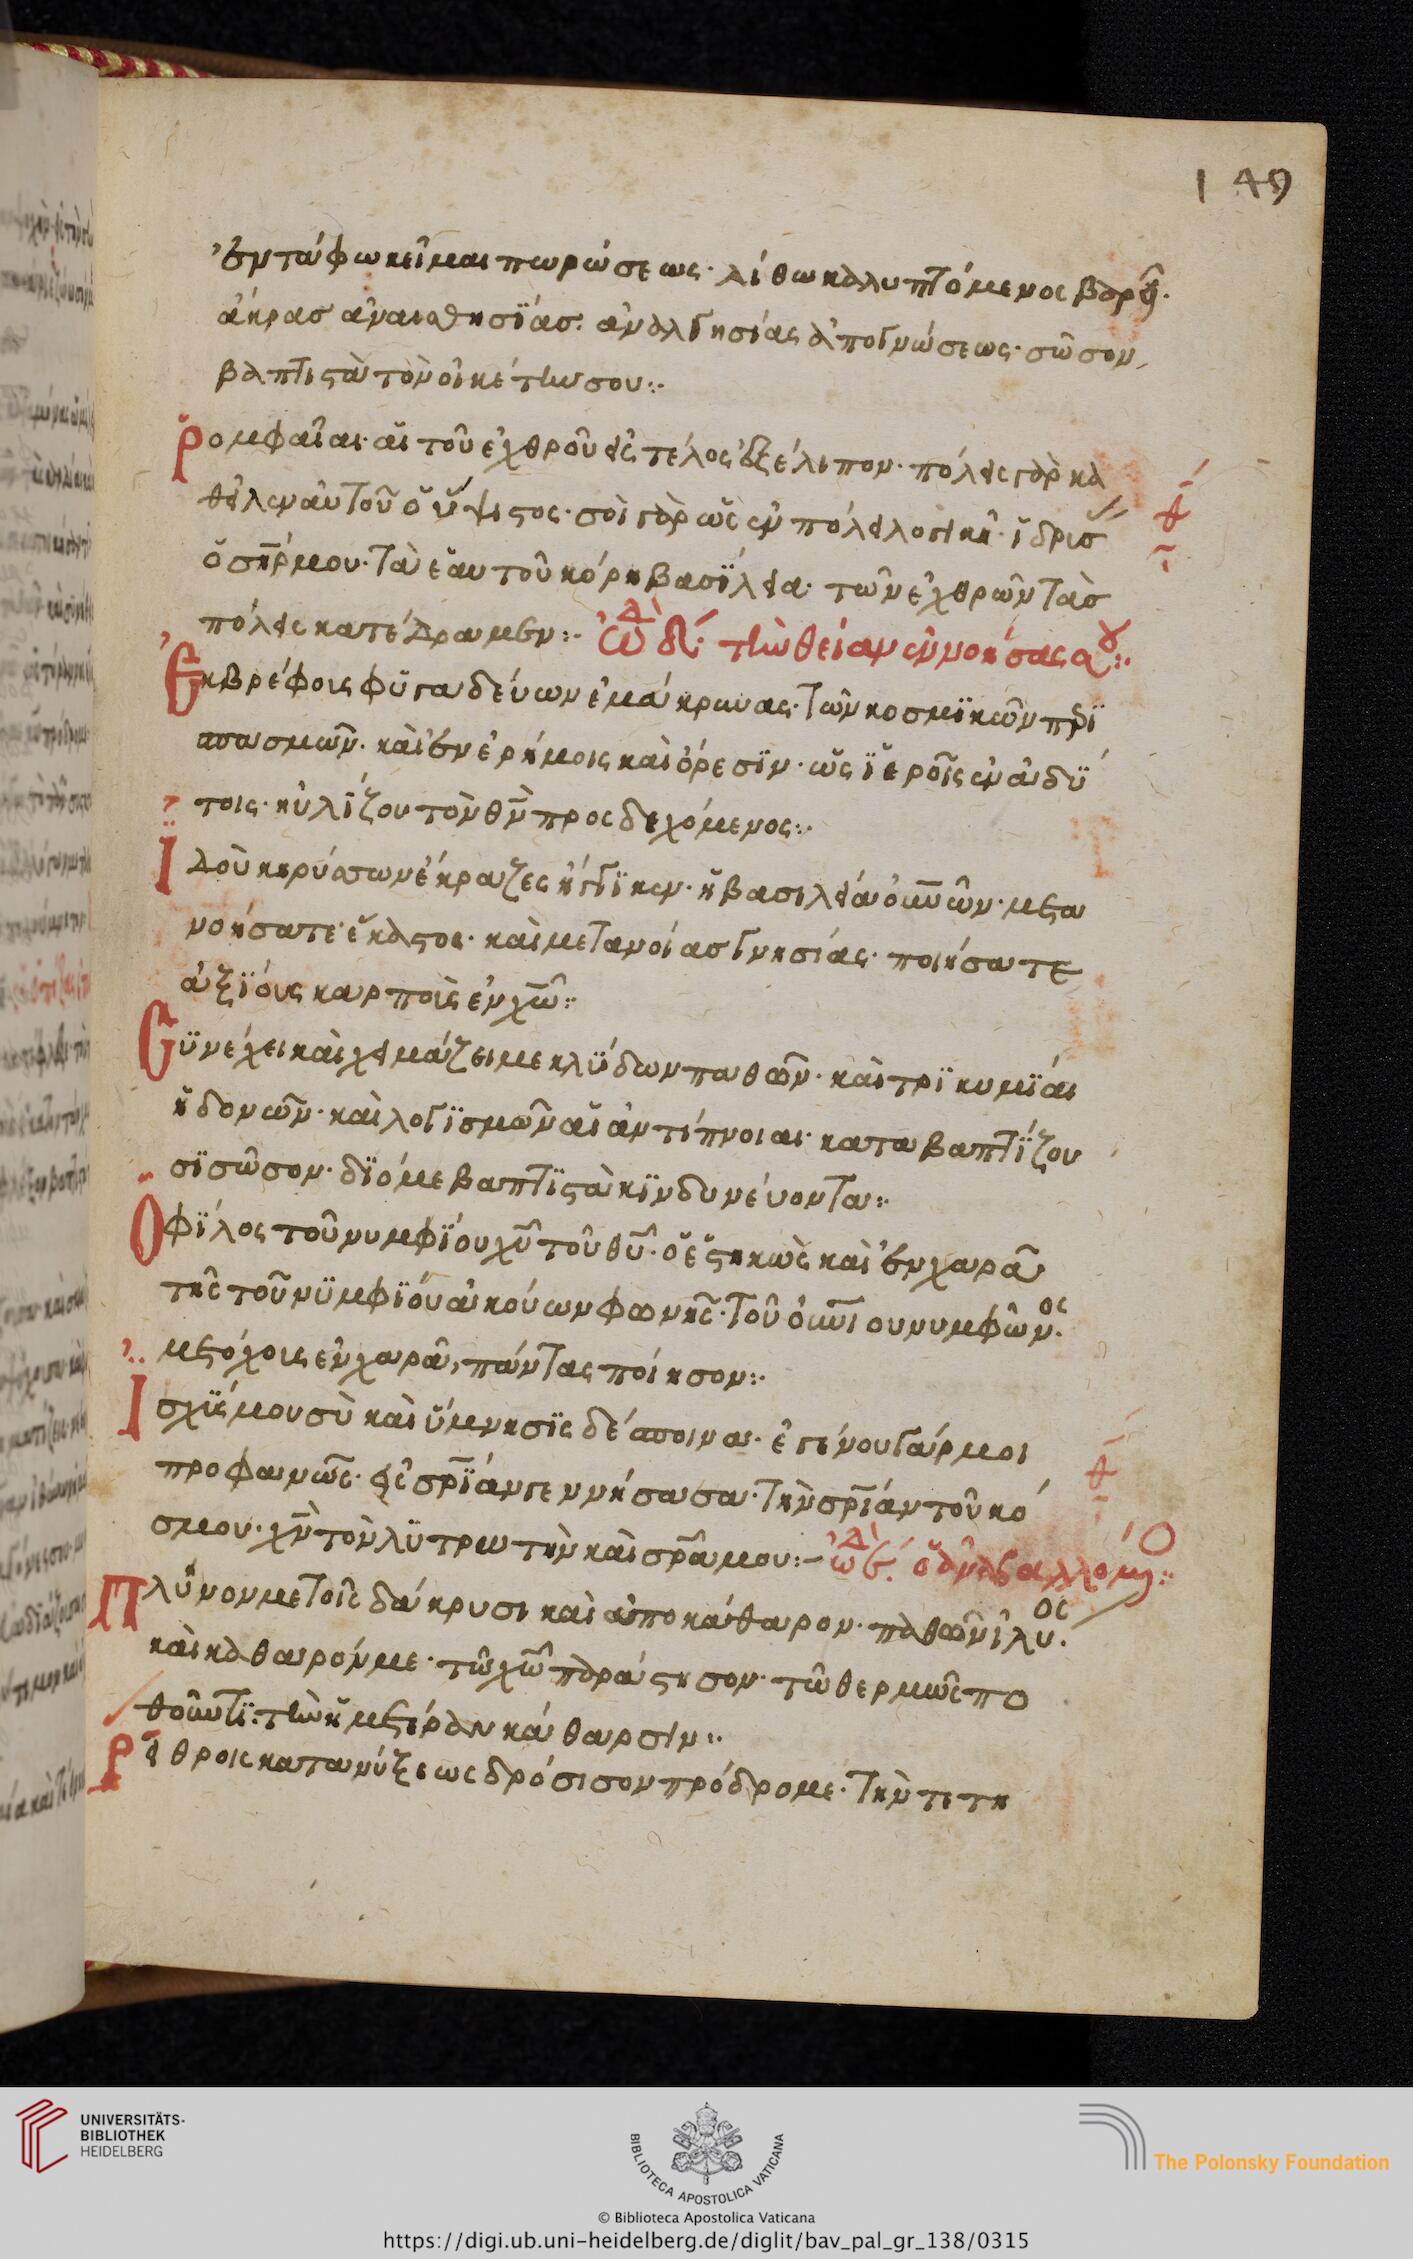 149
ἐν τάφω κεῖμαι πωρώσεως· λίθω καλυπτόμενος βαρεῖ·
ἄκρασ ἀναισθησΐασ. ἀναλγησίας ἀπογνώσεως· σῶσον
βαπτιστὰ τὸν οἰκέτην σου:·
Ῥομφαῖαι· αἱ τοῦ ἐχθροῦ εἰς τέλος ἐξέλιπον· πόλεις γὰρ κα
θεῖλεν αὐτοῦ ὁ ὕψιστος· σοὶ γὰρ ὡς ἐν πόλει λογικῆ· ἵδρισ
ὁ σπρ μου· τὰ ἑαυτοῦ κόρη βασΐλεια· τῶν ἐχθρῶν τὰσ
πόλεις κατέδραμεν:· ᾠδ δ· τὴν θείαν ἐννοήσας σου:·
Ἐκ βρέφοις φϋγαδεύων ἐμάκρυνας· τῶν κοσμϊκῶν περϊ
σπασμῶν· καὶ ἐν ἐρήμοις καὶ ὄρεσϊν· ὡς ϊεροῖς ἐν ἀδϋ
τοις· ηὐλΐζου τὸν θν προσδεχόμενος:·
Ἰδοὺ κηρύσσων ἔκραζες ἤγγϊκεν· ἡ βασιλεία οὐνῶν· μετα
νοήσατε ἕκαστος· καὶ μετανοίασ γνησίας· ποιήσατε
ἀξΐους καρποὺς ἐν χω:·
Σϋνέχει καὶ χειμάζει με κλΰδων παθῶν· καὶ τρϊκυμΐαι
ἡδονῶν· καὶ λογϊσμῶν αἱ ἀντίπνοιαι· καταβαπτΐζου
σϊ σῶσον· δϊό με βαπτϊστὰ κϊνδυνεύοντα:·
Ὁ φΐλος τοῦ νυμφΐου χυ τοῦ θυ· ὁ ἑστηκὼς καὶ ἐν χαρᾶ
τῆς τοῦ νϋμφΐου ἀκούων φωνῆς· τοῦ οὐνίου νυμφῶνος·
μετόχοις ἐν χαρᾶ, πάντας ποίησον:·
Ἰσχΰς μου σὺ καὶ ὕμνησϊς δέσποινα· ἐγένου γάρ μοι
προφανῶς· εἰς σρΐαν γεννήσασα· τὴν σρίαν τοῦ κό
σμου· χν τὸν λϋτρωτὴν καὶ σρα μου:- ᾠδ ϛ· ὁ ἀναβαλλόμενος:·
Πλῦνον με τοῖς δάκρυσι καὶ ἀποκάθαρον· παθῶν ἰλύος·
καὶ καθαρόν με· τῶ χω παράστησον· τῶ θερμῶς πο
θοῦντϊ· τὴν ἡμετέραν κάθαρσιν:·
Ῥείθροις κατανύξεως δρόσισον πρόδρομε· τὴν τετη
UNIVERSITÄTS-
BIBLIOTHEK
HEIDELBERG
BIBLIOTECA APOSTOLICA VATICANA
The Polonsky Foundation
© Biblioteca Apostolica Vaticana
https://digi.ub.uni-heidelberg.de/diglit/bav_pal_gr_138/0315